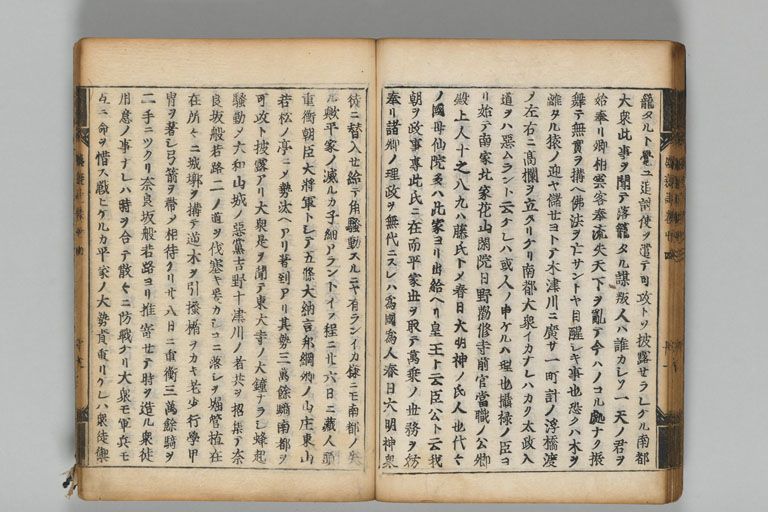 籠タルト覺ユ追討使ヲ遣テ可攻トソ披露セラレケル南都
大衆此事ヲ聞テ落籠タル謀叛人ハ誰カレソ一天ノ君ヲ
始奉リ卿相雲客奉流失天下ヲ亂テ今ハノコル處ナク振
舞テ無實ヲ構ヘ佛法ヲ亡サントヤ目醒レキ事也恐クハ木ヲ
離タル猿ノ迎ヤ儲セヨトテ木津川ニ廣サ一町計ノ浮橋渡
ノ左右ニ高欄ヲ立タリケリ南都大衆イカナレハカク太政入
道ヲハ惡ムラント云ケレハ或人ノ申ケルハ理也攝禄ノ臣ヨ
リ始テ南家北家花山閑院日野勸修寺前官當職ノ公卿
殿上人十之八九ハ藤氏トメ春日大明神ノ氏人也代々
ノ國母仙院多ハ此家ヨリ出給ヘリ皇王ト云臣公ト云我
朝ヲ政事專此氏ニ在而平家世ヲ取テ萬乘ノ世務ヲ妨
奉リ諸卿ノ理政ヲ無代ニスレハ爲國爲人春日大明神衆
徒ニ替入セ給テ角騷動スルニヤ有ランイカ樣ニモ南都ノ失
ル歟平家ノ滅ルカ子細アラントイフ程ニ廿六日ニ藏人頭
重衡朝臣大將軍トレテ五條大納言邦綱卿ノ山庄東山
若松ノ亭ニメ勢汰ヘアリ著到アリ其勢三萬餘騎南都ヲ
可攻ト披露アリ大衆是ヲ聞テ東大寺ノ大鐘ナラシ蜂起
騷動メ大和山城ノ惡黨吉野十津川ノ者共ヲ招集テ奈
良坂般若路二ノ道ヲ伐塞キ爰カシコニ落シヲ堀管植在
在所々ニ城郭ヲ構テ逆木ヲ引楯ヲカキ老少行學甲
冑ヲ著シ弓箭ヲ帶メ相待ケリ廿八日ニ重衡三萬餘騎ヲ
二手ニツクリ奈良坂般若路ヨリ推寄セテ時ヲ造ル衆徒
用意ノ事ナレハ時ヲ合テ散々ニ防戰ケリ大衆モ軍兵モ
互ニ命ヲ惜ス戰ヒケルカ平家ノ大勢責重リケレハ衆徒禦